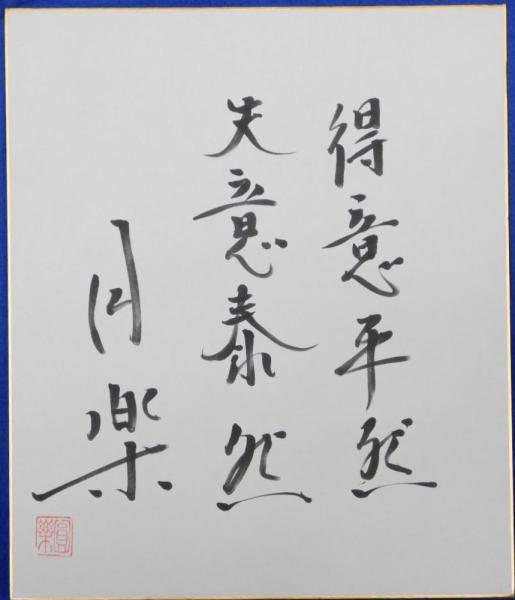 得意平然
失意泰然
円楽
圓樂